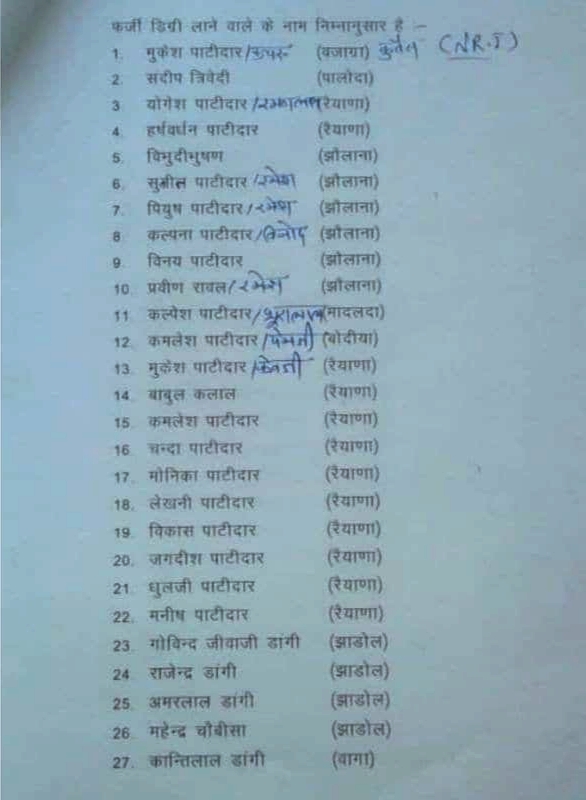 फर्जी डिग्री लाने वाले के नाम निम्नानुसार है :–
1. मुकेश पाटीदार (वजाग्रा) कुवैत (N.R.I)
2. संदीप त्रिवेदी (पालोदा)
3. योगेश पाटीदार (रैयाणा)
4. हर्षवर्धन पाटीदार (रैयाणा)
5. विमुदीभुषण (झौलाना)
6. सुनील पाटीदार/रमेश (झौलाना)
7. पियुष पाटीदार/रमेश (झौलाना)
8. कल्पना पाटीदार/विनोद (झौलाना)
9. विनय पाटीदार (झौलाना)
10. प्रवीण रावल/रमेश (झौलाना)
11. कल्पेश पाटीदार (मादलदा)
12. कमलेश पाटीदार (बोदीया)
13. मुकेश पाटीदार (रैयाणा)
14. बाबुल कलाल (रैयाणा)
15. कमलेश पाटीदार (रैयाणा)
16. चन्दा पाटीदार (रैयाणा)
17. मोनिका पाटीदार (रैयाणा)
18. लेखनी पाटीदार (रैयाणा)
19. विकास पाटीदार (रैयाणा)
20. जगदीश पाटीदार (रैयाणा)
21. धुलजी पाटीदार (रैयाणा)
22. मनीष पाटीदार (रैयाणा)
23. गोविन्द जीवाजी डांगी (झाडोल)
24. राजेन्द्र डांगी (झाडोल)
25. अमरलाल डांगी (झाडोल)
26. महेन्द्र चौबीसा (झाडोल)
27. कान्तिलाल डांगी (वागा)